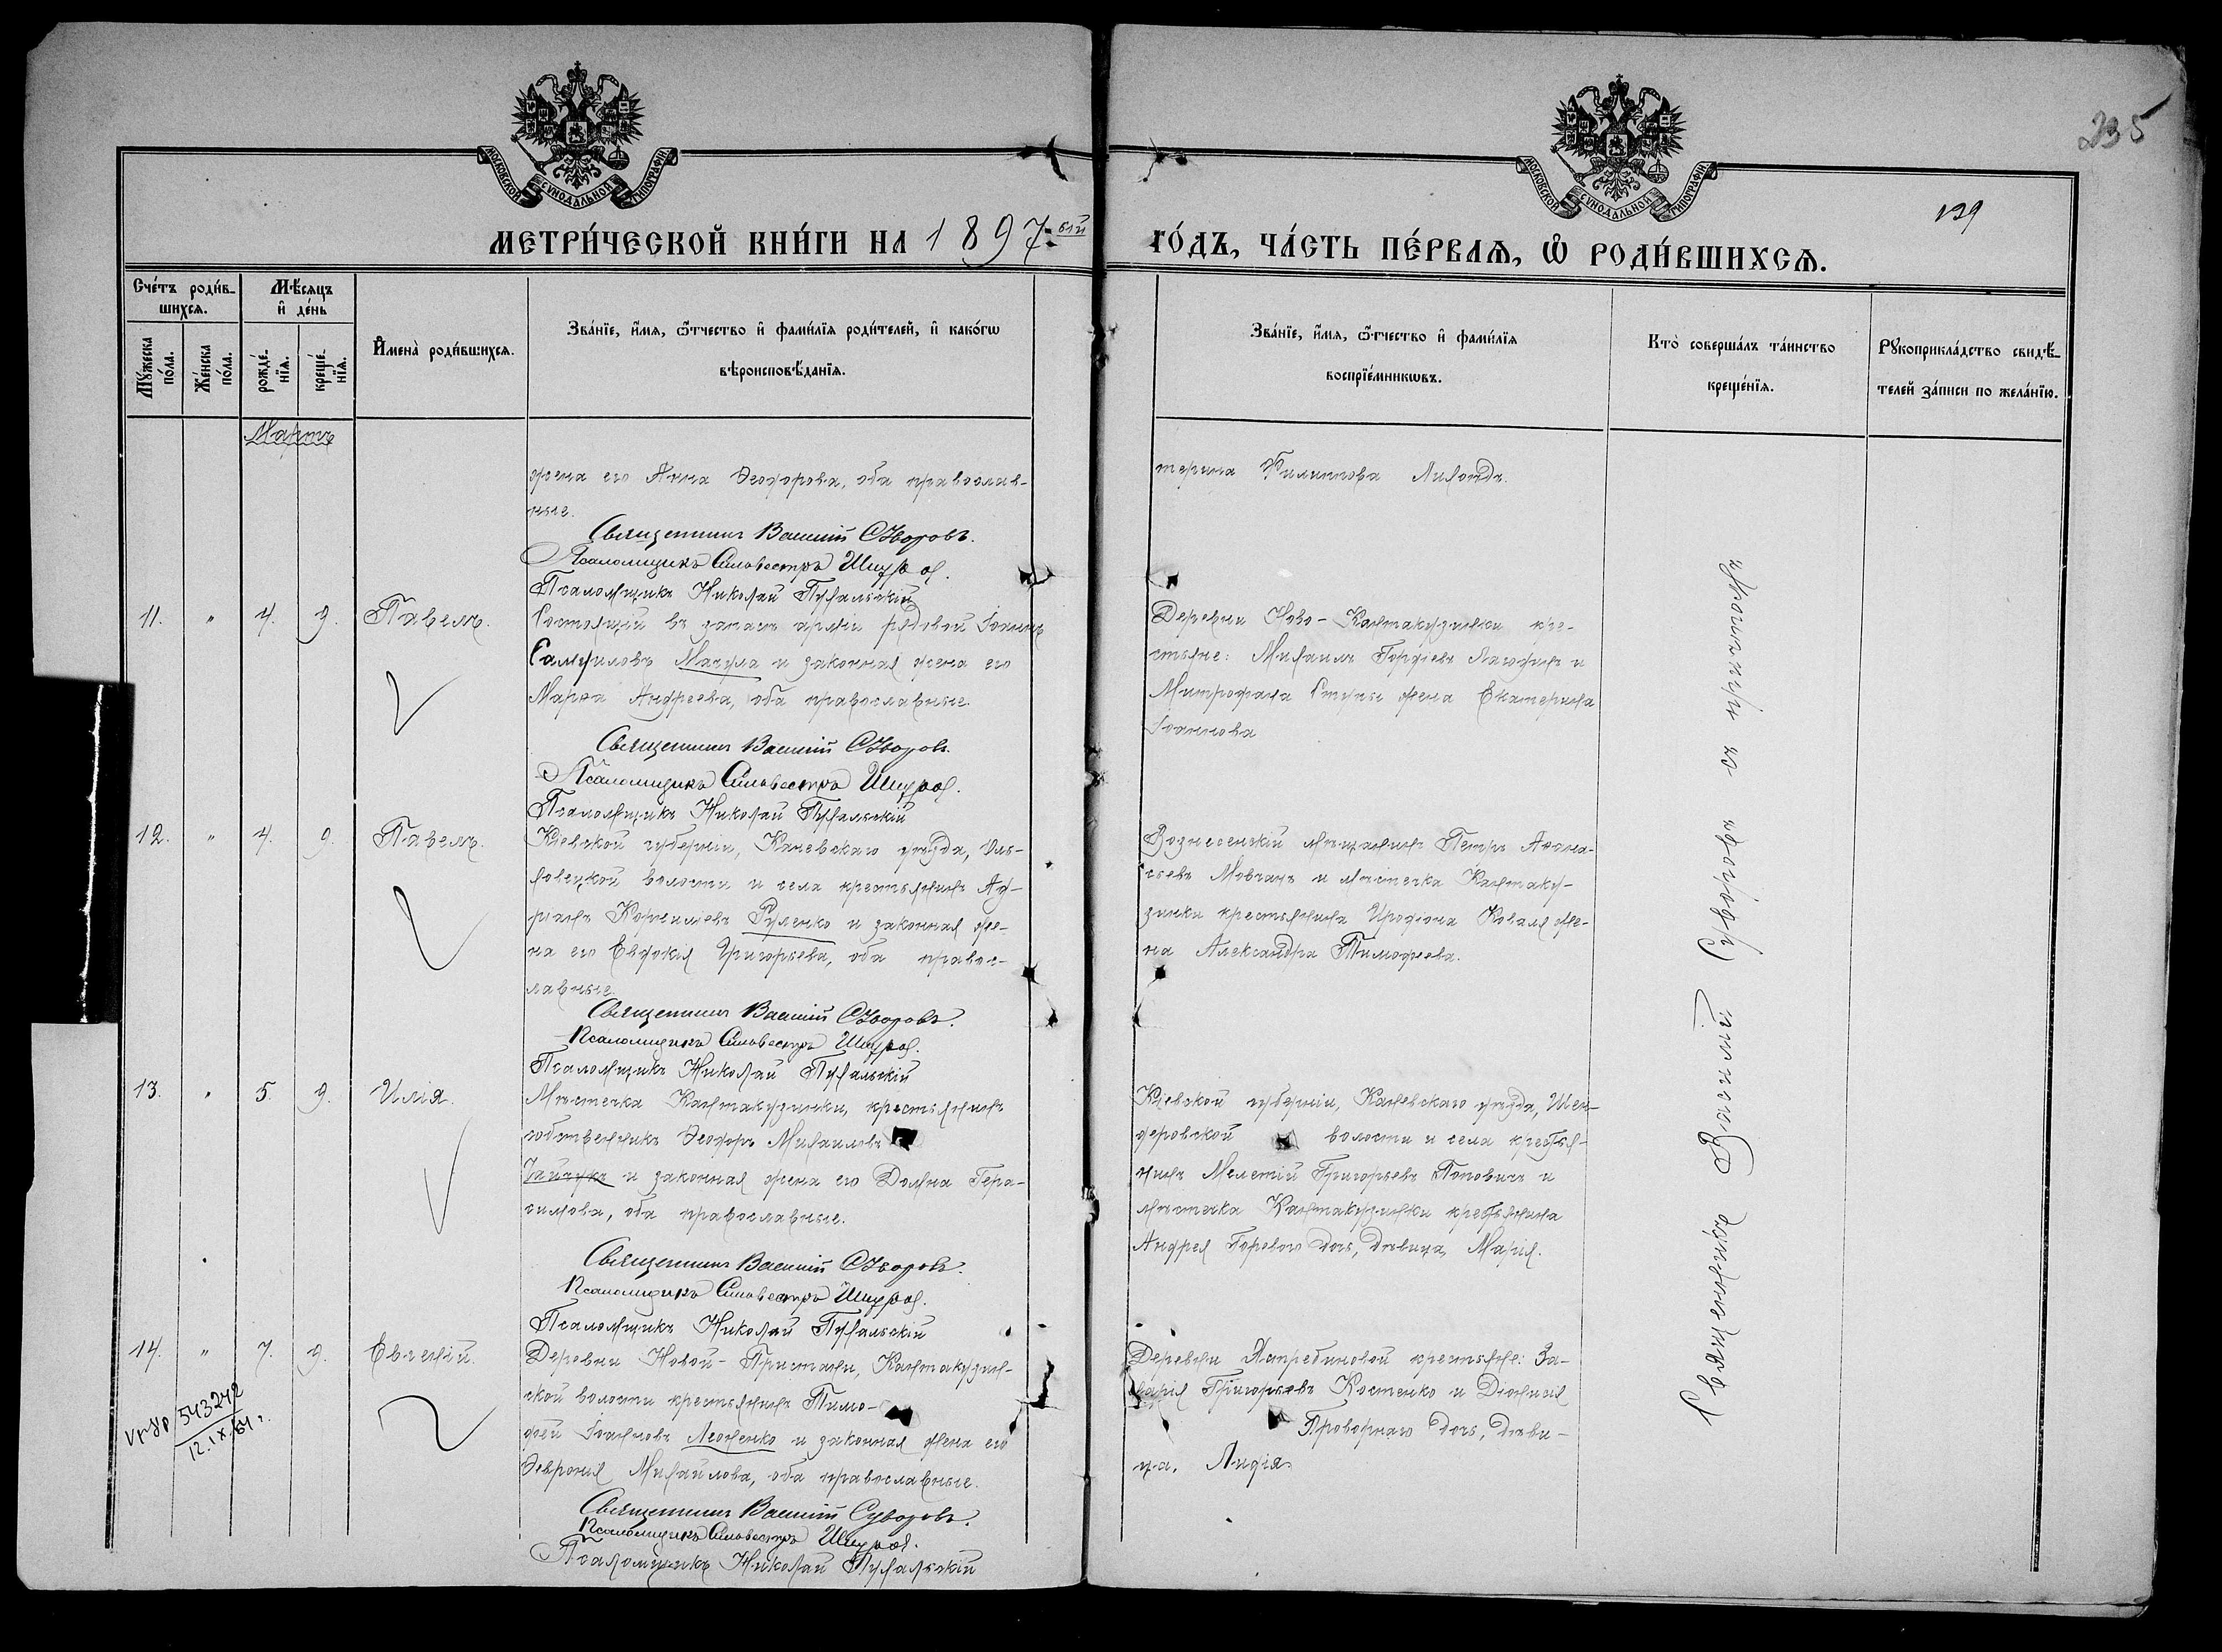 235
139
МОСКОВСКОЙ СѴНОДАЛЬНОЙ ТИПОГРАФІИ
МОСКОВСКОЙ СѴНОДАЛЬНОЙ ТИПОГРАФІИ
МЕТРИ́ЧЕСКОЙ КНИ́ГИ НА 1897-ый
ГО́ДЪ, ЧА́СТЬ ПЕ́РВАѦ, Ѡ РОДИ́ВШИХСѦ.
Сче́тъ роди́в-
шихсѧ.
Мѣ́сяцъ
и҆ де́нь
Мꙋ́жеска по́ла.
Же́нска по́ла.
рожде́-нїѧ.
креще́-нїѧ.
И҆мена̀ роди́вшихсѧ.
Зва́нїе, и҆́мѧ, ѻ҆́тчество и҆ фами́лїѧ роди́телей, и҆ како́гѡ
вѣроисповѣ́данїѧ.
Зва́нїе, и҆́мѧ, ѻ҆́тчество и҆ фами́лїѧ
воспрїе́мникѡвъ.
Кто̀ соверша́лъ та́инство
креще́нїѧ.
Рꙋкоприкла́дство свидѣ́-
телей за́писи по жела́нїю.
Мартъ
жена его Анна Ѳеодорова, оба православ-
ные.
Священникъ Василій Суворовъ.
Псаломщикъ Сильвестръ
Псаломщикъ Николай
терина Филиппова
11. " 4. 9. Павелъ.
Состоящій въ запасѣ арміи рядовой Іоаннъ
Самуиловъ Мачула и законная жена его
Марѳа Андреева, оба православные.
Священникъ Василій Суворовъ.
Псаломщикъ Сильвестръ
Псаломщикъ Николай
Деревни Ново-Кантакузинки кре-
стьяне: Михаилъ Гордіевъ и
Митрофана Ступы жена Екатерина
Іоаннова
12. " 4. 9. Павелъ.
Кіевской губерніи, Каневскаго уѣзда,
волости и села крестьянинъ Ад-
ріанъ Корниліевъ Руленко и законная же-
на его Евдокія Григорьева, оба правос-
лавные.
Священникъ Василій Суворовъ.
Псаломщикъ Сильвестръ
Псаломщикъ Николай
Вознесенскій мѣщанинъ Петръ Аѳана-
сьевъ Мовчанъ и мѣстечка Кантаку-
зинки крестьянина Иродіона Коваля же-
на Александра Тимофеева.
13. " 5. 9. Илія.
Мѣстечка Кантакузинки, крестьянинъ
собственникъ Ѳеодоръ Михаиловъ
и законная жена его Домна Гера-
симова, оба православные.
Священникъ Василій Суворовъ.
Псаломщикъ Сильвестръ
Псаломщикъ Николай
Кіевской губерніи, Каневскаго уѣзда, Шен-
деровской волости и села крестья-
нинъ Мелетій Григорьевъ Поповичъ и
мѣстечка Кантакузинки крестьянина
Андрея Горевого дочь, дѣвица Марія.
14. " 7. 9. Евгеній.
Деревни Новой-Пристани, Кантакузин-
ской волости крестьянинъ Тимо-
фей Іоанновъ Леоненко и законная жена его
Февронія Михайлова, оба православные.
Священникъ Василій Суворовъ.
Псаломщикъ Сильвестръ
Псаломщикъ Николай
Деревни Ястребиновой крестьяне: За-
харія Григорьевъ Костенко и Діонисія
Проворнаго дочь, дѣви-
ца, Лидія
543242
12.IX.64 г.
Священникъ Василій Суворовъ съ причтомъ